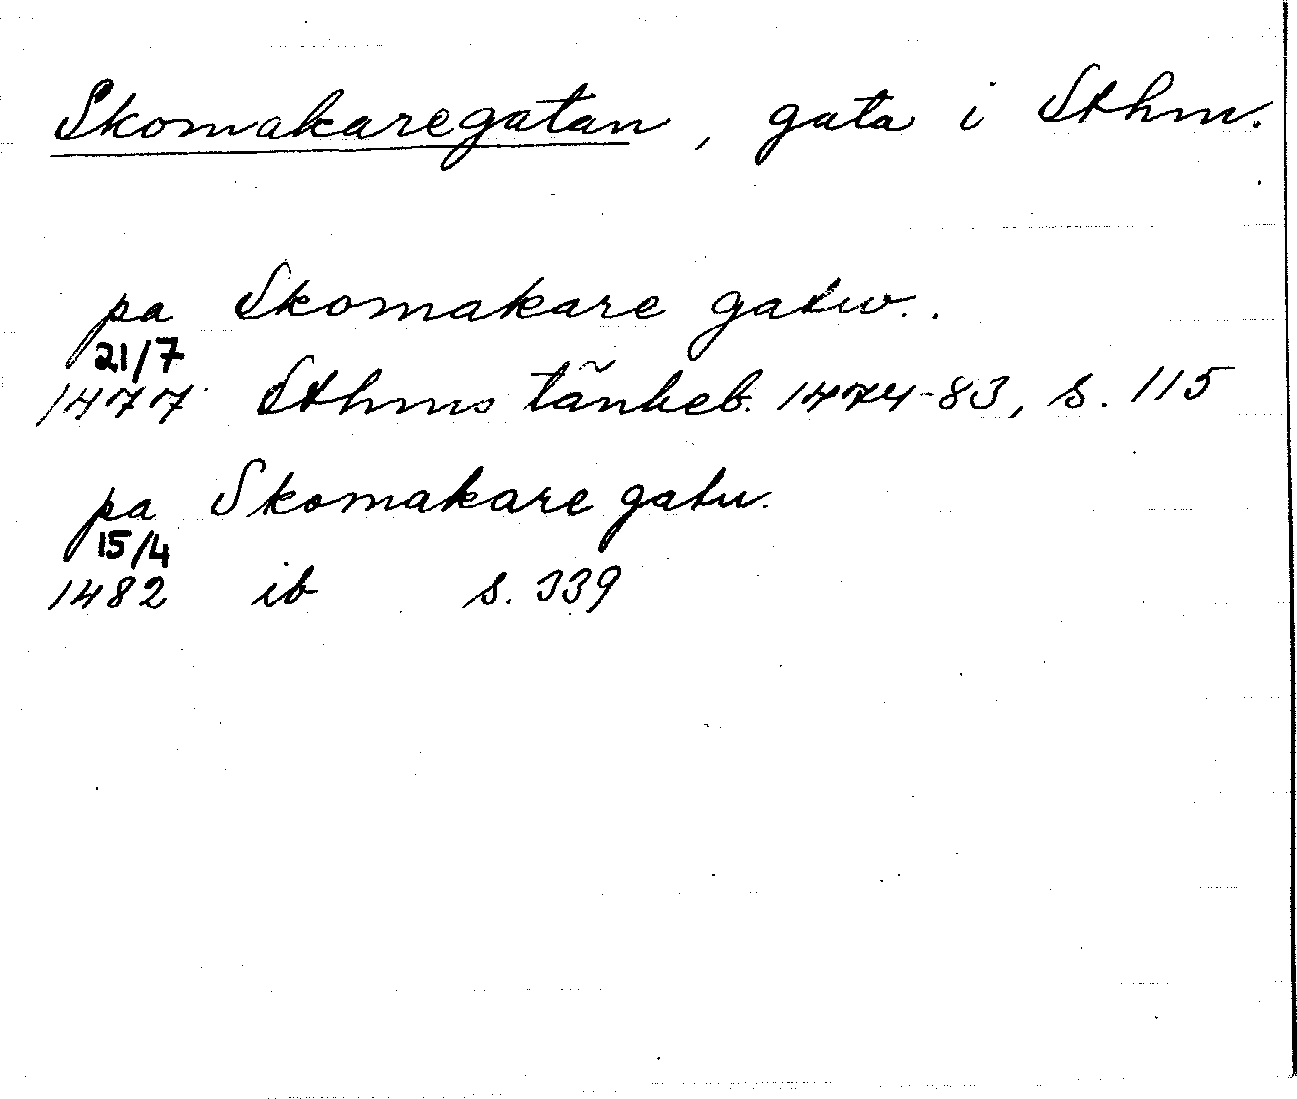 Skomakaregatan, gata i Sthm.
pa Skomakare gatw..
21/7
1477 Sthms tänkeb. 1474-83, s. 115
pa Skomakare gatu.
15/4
1482 ib s. 339